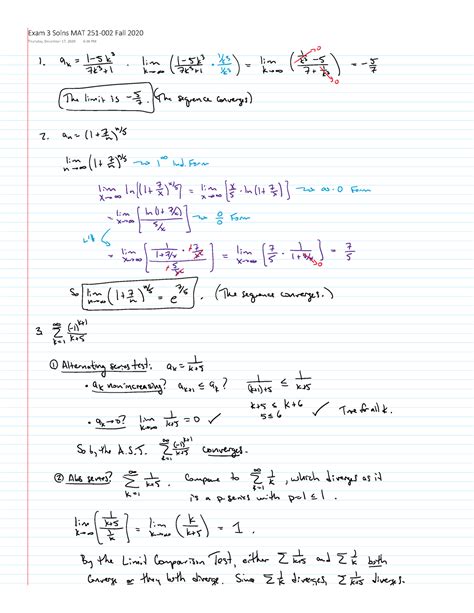 Exam 3 Solns MAT 251-002 Fall 2020
Thursday, December 17, 2020
1. a_k = (1-5k³)/(7k³+1) . lim_{k→∞} ( (1-5k³)/(7k³+1) · (1/k³)/(1/k³) ) = lim_{k→∞} ( (1/k³ - 5)/(7 + 1/k³) ) = -5/7
→0
→0
The limit is -5/7. (The sequence converges)
2. a_n = (1+7/n)^{n/5}
lim_{n→∞} (1+7/n)^{n/5} ⇝ 1^∞ Ind. Form
lim_{x→∞} ln[(1+7/x)^{x/5}] = lim_{x→∞} [x/5 · ln(1+7/x)] ⇝ ∞·0 Form
= lim_{x→∞} [ln(1+7/x) / (5/x)] ⇝ 0/0 Form
L'H
= lim_{x→∞} [ 1/(1+7/x) · (+7/x²) / (+5/x²) ] = lim_{x→∞} [7/5 · 1/(1+7/x)] = 7/5
→0
So lim_{n→∞} (1+7/n)^{n/5} = e^{7/5} . (The sequence converges.)
3. ∑_{k=1}^{∞} (-1)^{k+1}/(k+5)
① Alternating series test: a_k = 1/(k+5)
• a_k nonincreasing? a_{k+1} ≤ a_k? 1/((k+1)+5) ≤ 1/(k+5)
k+5 ≤ k+6
5 ≤ 6 ✓ True for all k.
• a_k→0? lim_{k→∞} 1/(k+5) = 0 ✓
So by the A.S.T. ∑_{k=1}^{∞} (-1)^{k+1}/(k+5) converges.
② Abs series? ∑_{k=1}^{∞} 1/(k+5). Compare to ∑_{k=1}^{∞} 1/k, which diverges as it
is a p-series with p=1≤1.
lim_{k→∞} [ (1/(k+5)) / (1/k) ] = lim_{k→∞} (k/(k+5)) = 1.
By the Limit Comparison Test, either ∑ 1/(k+5) and ∑ 1/k both
converge or they both diverge. Since ∑ 1/k diverges, ∑ 1/(k+5) diverges.